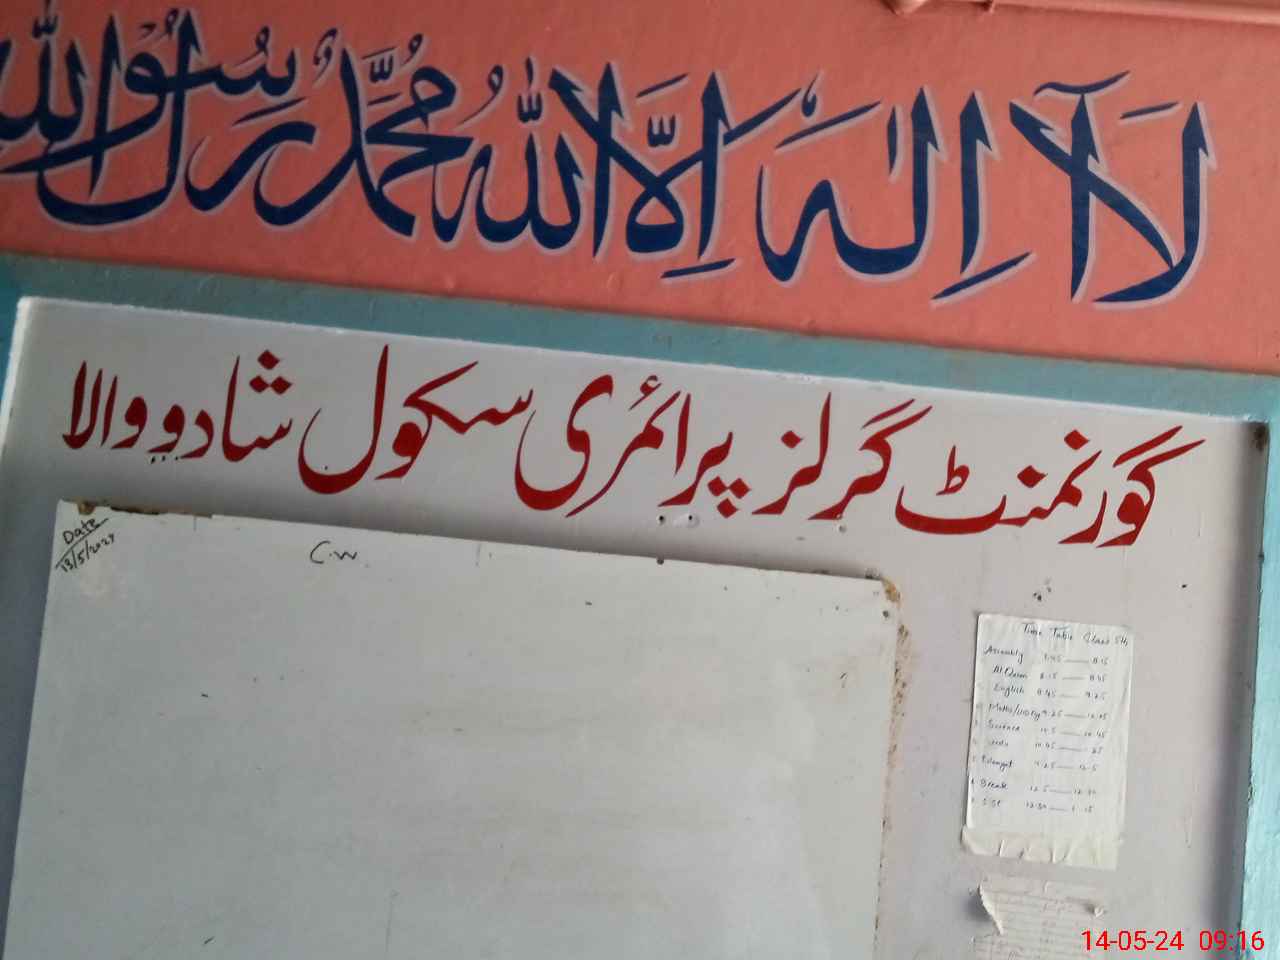 لَآ اِلٰهَ اِلَّا اللّٰهُ مُحَمَّدٌ رَّسُوْلُ اللّٰهِ
گورنمنٹ گرلز پرائمری سکول شادو والا
Date
13/5/2024
C.W.
Time Table Class 5th
Assembly 7.45 — 8.15
Al Quran 8.15 — 8.45
English 8.45 — 9.25
Maths 9.25
Science 10.45
Urdu 10.45
Islamyat 12.5
Break 12.5 — 12.30
S.St 12.30 — 1.15
14-05-24 09:16